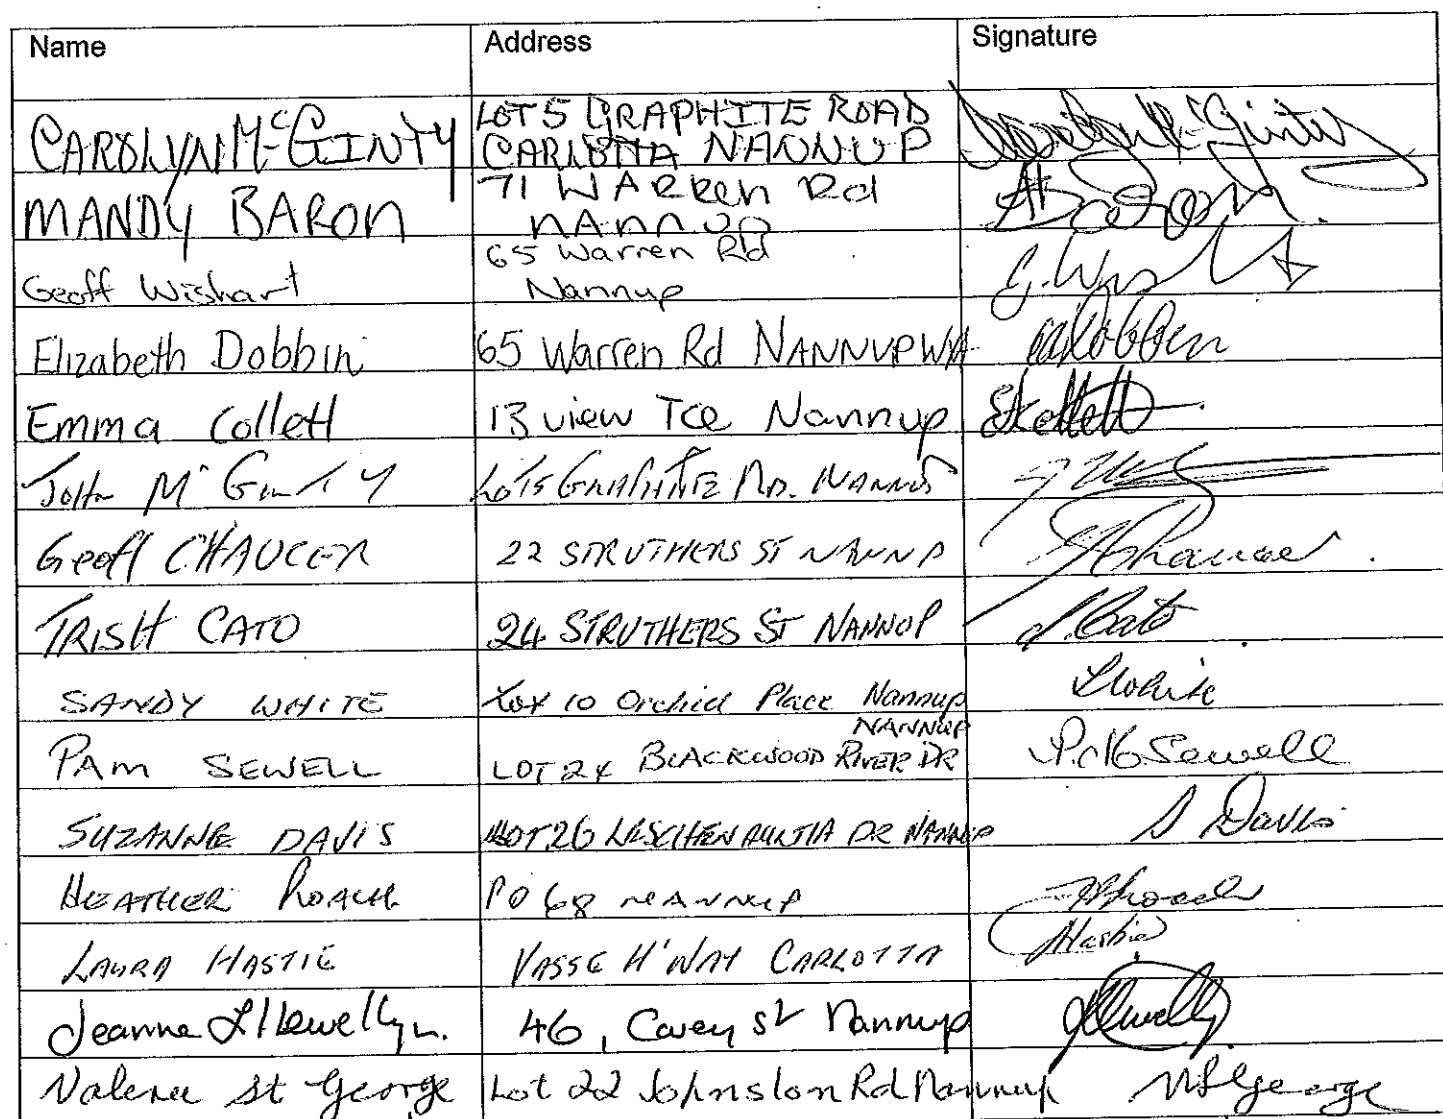 Name Address Signature
CAROLYN McGINTY LOT 5 GRAPHITE ROAD Carolyn McGinty
CARLOTTA NANNUP
MANDY BARON 71 WARRen Rd Baron.
nAnnup
Geoff Wishart 65 Warren Rd
Nannup
Elizabeth Dobbin 65 Warren Rd NANNUP WA Dobbin
Emma Collett 13 view Tce Nannup Collett
John McGinty LOT 5 GRAPHITE RD. NANNUP
Geoff CHAUCER 22 STRUTHERS ST NANNP Chaucer.
TRISH CATO 24 STRUTHERS ST NANNUP Cato
SANDY WHITE Lot 10 Orchid Place Nannup White
PAM SEWELL LOT 24 BLACKWOOD RIVER DR NANNUP Sewell
SUZANNE DAVIS LOT 26 LESCHENAULTIA DR NANNUP S Davis
HEATHER ROACH PO 68 NANNUP HRoach
LAURA HASTIE VASSE H'WAY CARLOTTA Hastie
Jeanne Llewellyn. 46, Carey St Nannup
Valerie St George Lot 22 Johnston Rd Nannup V St George